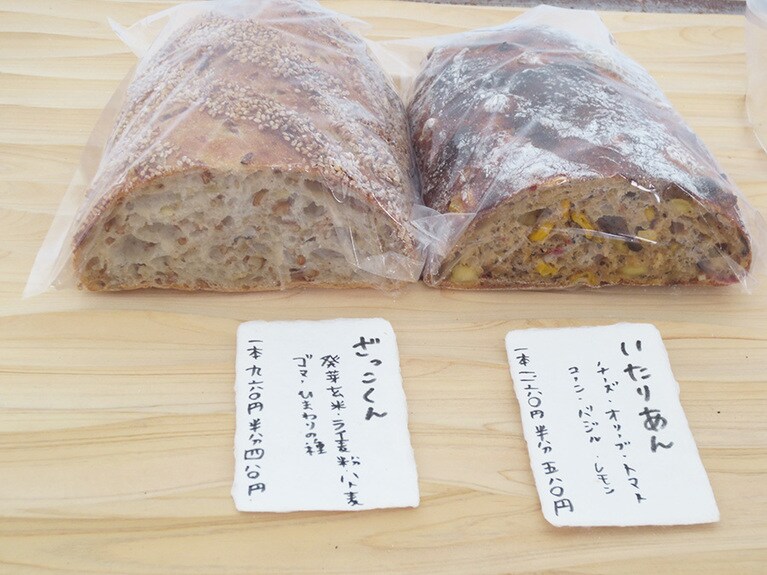 ざっこくん
発芽玄米・ライ麦粉・ハト麦
ゴマ・ひまわりの種
一本 九六〇円 半分 四八〇円
いたりあん
チーズ・オリーブ・トマト
コーン・バジル・レモン
一本 一一六〇円 半分 五八〇円